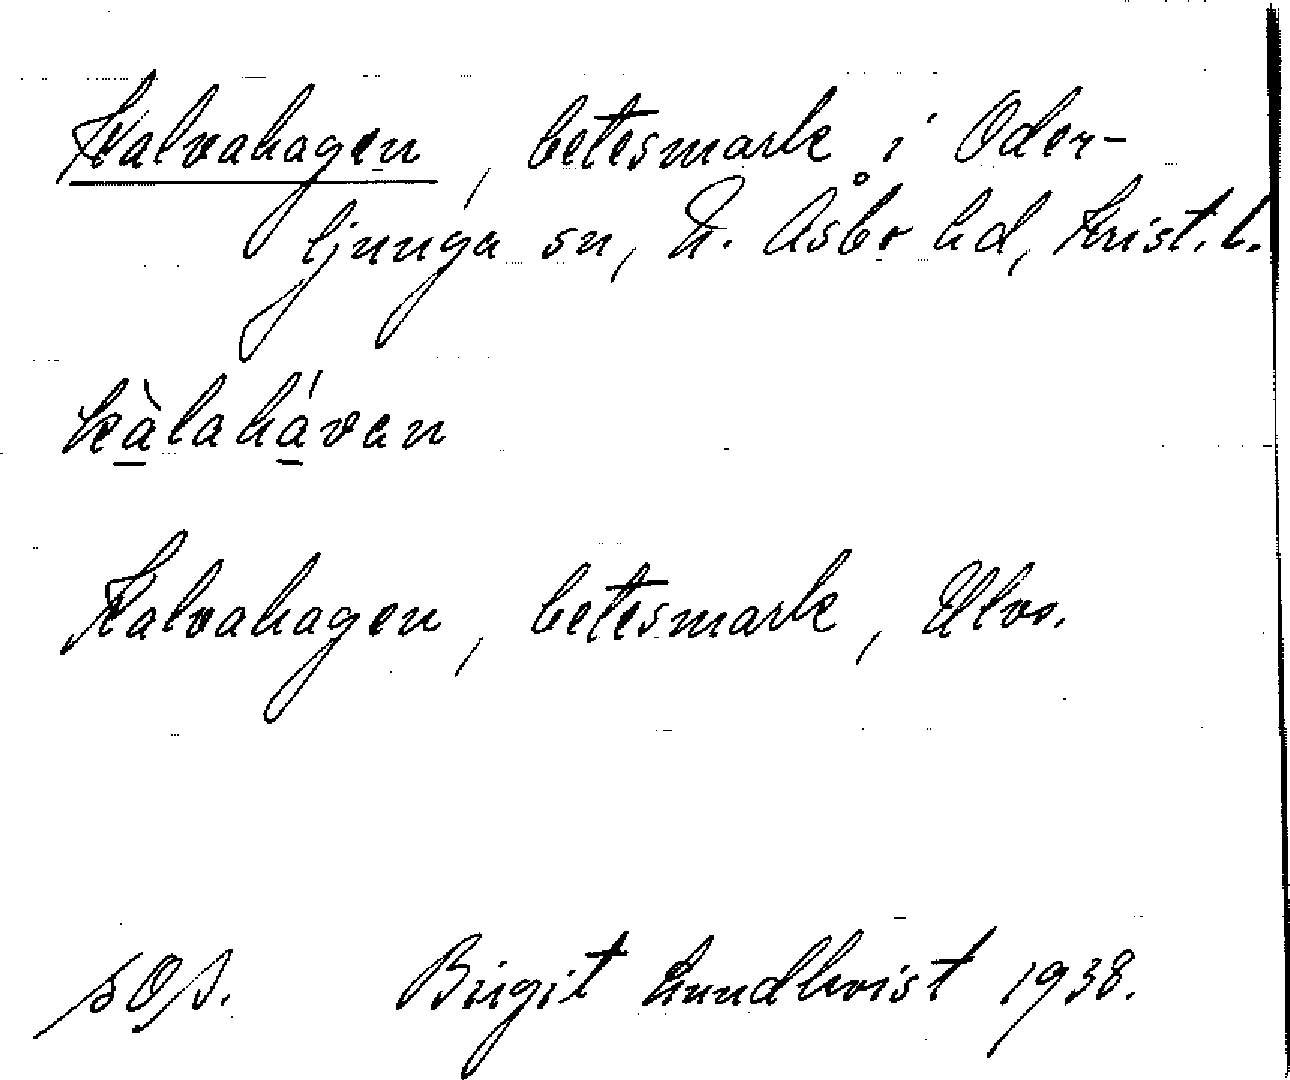 Kalvahagen, betesmark i Oder-
ljunga sn, N. Åsbo hd, Krist. l.
kàlahávan
Kalvahagen, betesmark, Ulvs.
Birgit Lundkvist 1938.